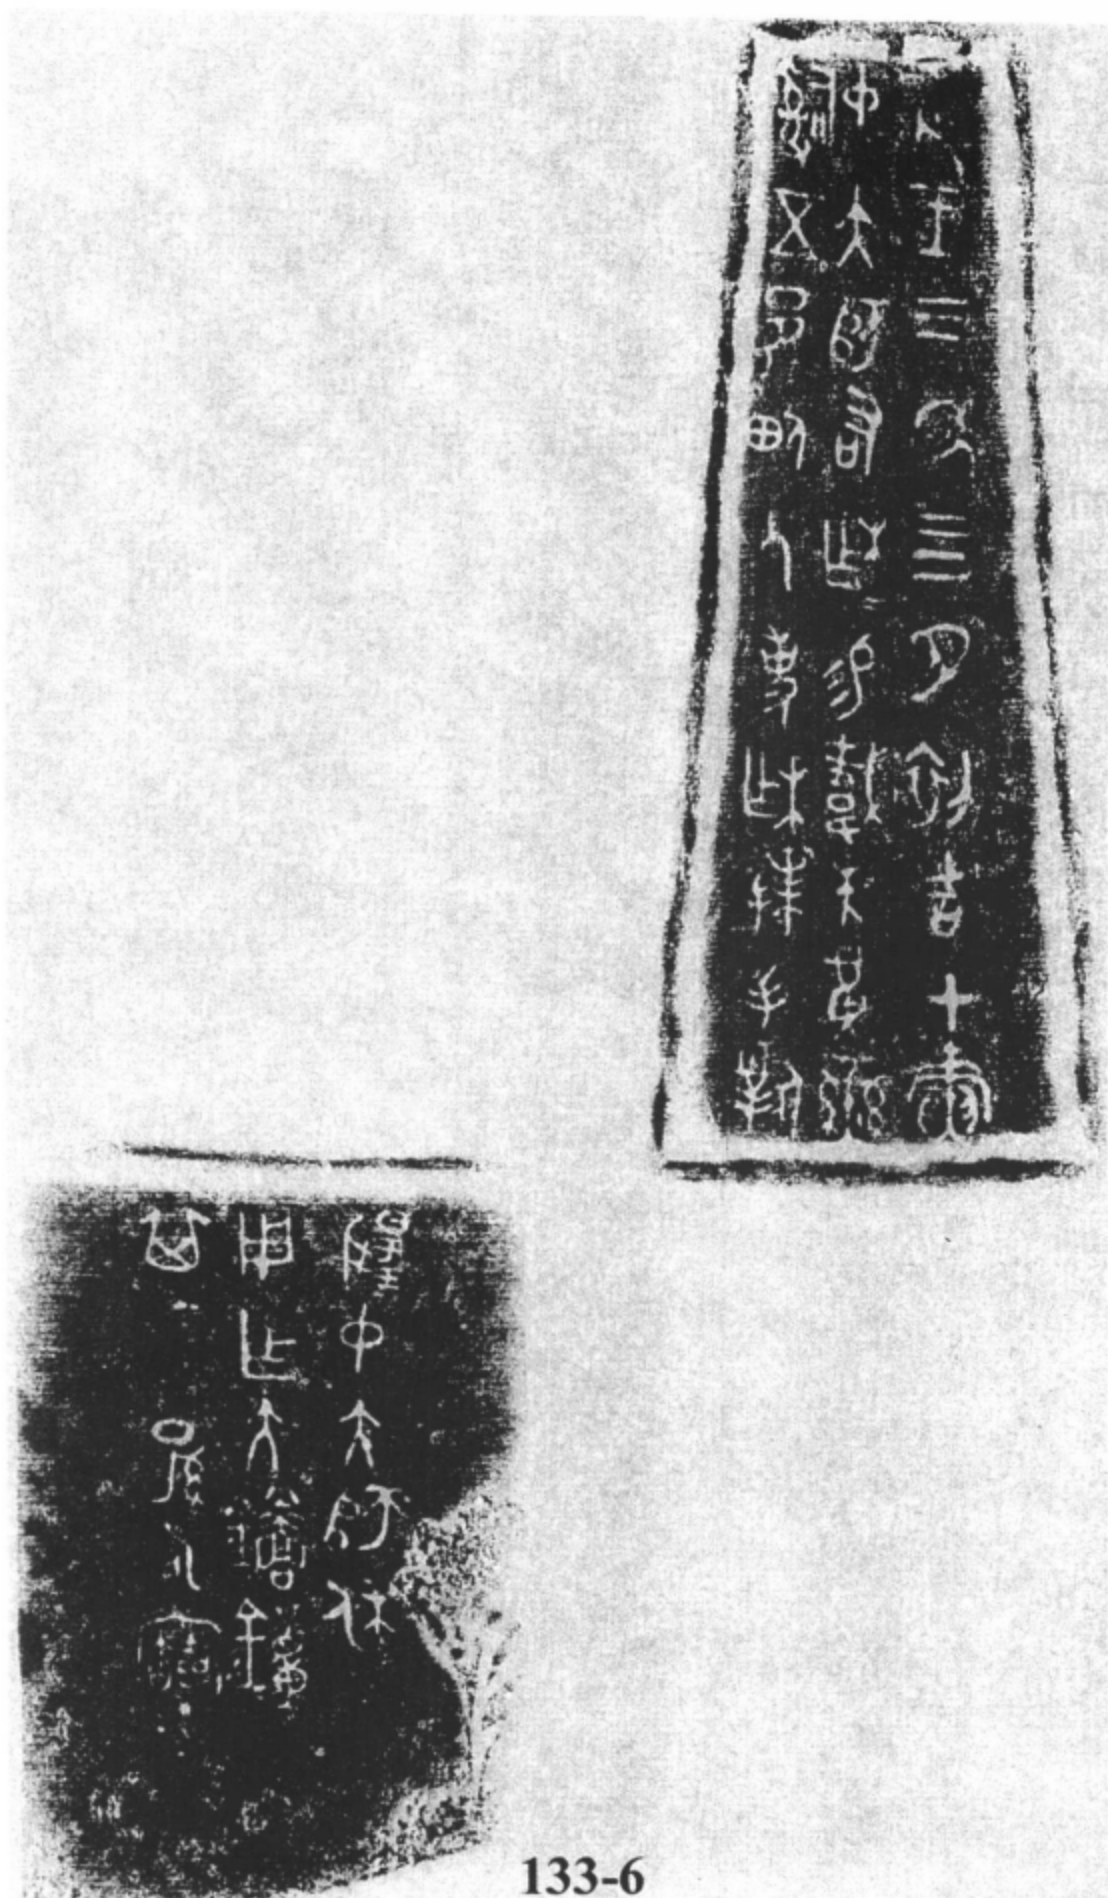 隹王三年四月初吉甲寅
中大師右柞=易載朱黃䜌
𤔲五邑佃人事柞拜手對
揚中大師休
用乍大鑰鐘
其孫永寶
133-6